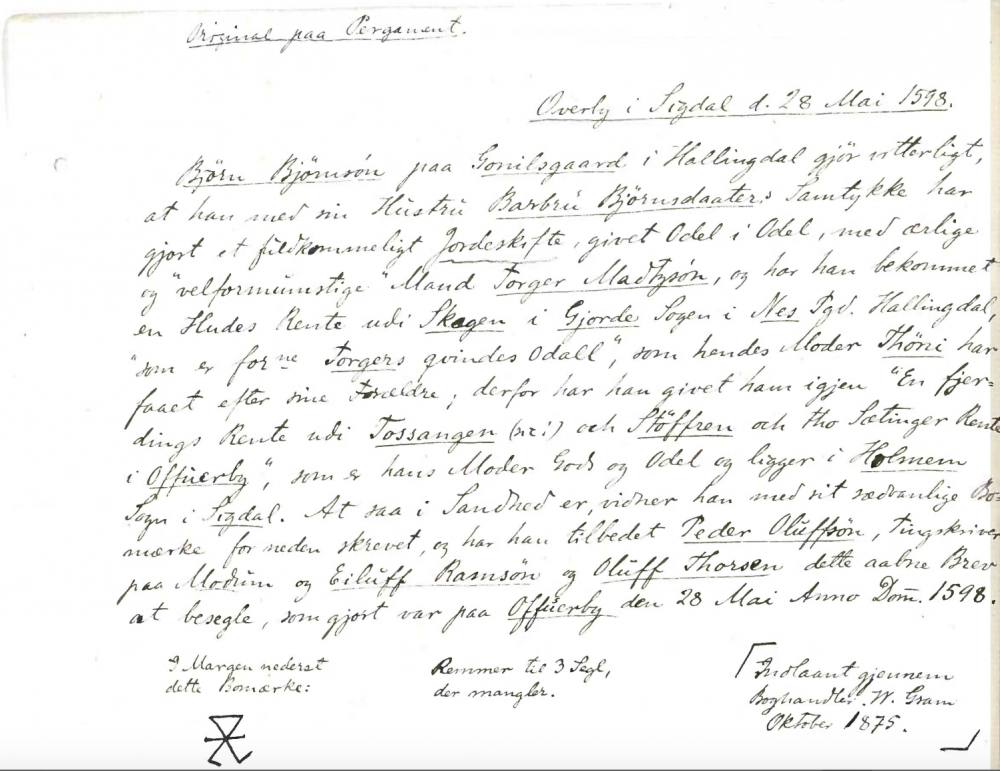 Original paa Pergament.
Overby i Sigdal d. 28 Mai 1598.
Björn Björnsön paa Gonilsgaard i Hallingdal gjör vitterligt,
at han med sin Hustru Barbru Björnsdaaters Samtykke har
gjort et fuldkommeligt Jordeskifte, givet Odel i Odel, med ærlige
og "velformunstige" Mand Torger Madtzsön, og har han bekommet
en Hudes Rente udi Skogen i Gjorde Sogen i Nes Pgd. Hallingdal,
"som er forne Torgers qvindes Odall", som hendes Moder Thöni har
faaet efter sine Forældre; derfor har han givet ham igjen "En fjer-
dings Rente udi Tossangen och Stöffren och tho Sætinger Rente
i Offuerby", som er hans Moder Gods og Odel og ligger i Holmem
Sogn i Sigdal. At saa i Sandhed er, vidner han med sit sædvanlige Bo-
mærke for neden skrevet, og har han tilbedet Peder Oluffsön, Tingskriver
paa Modum og Eiluff Ramsön og Oluff Thorsen dette aabne Brev
at besegle, som gjort var paa Offuerby den 28 Mai Anno Dom. 1598.
I Margen nederst
dette Bomærke:
Remmer til 3 Segl,
der mangler.
Indlaant gjennem
Boghandler W. Gram
Oktober 1875.